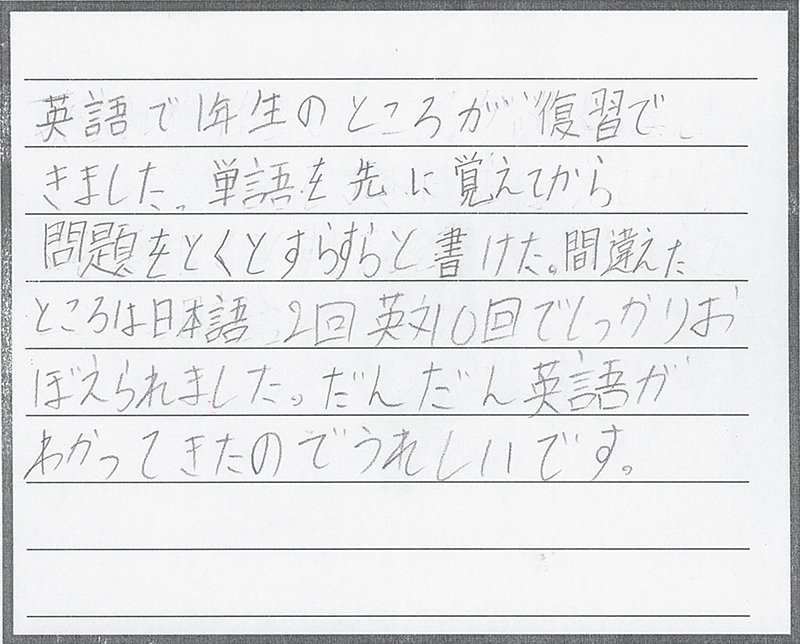 英語で1年生のところが復習で
きました。単語を先に覚えてから
問題をとくとすらすらと書けた。間違えた
ところは日本語2回英文10回でしっかりお
ぼえられました。だんだん英語が
わかってきたのでうれしいです。